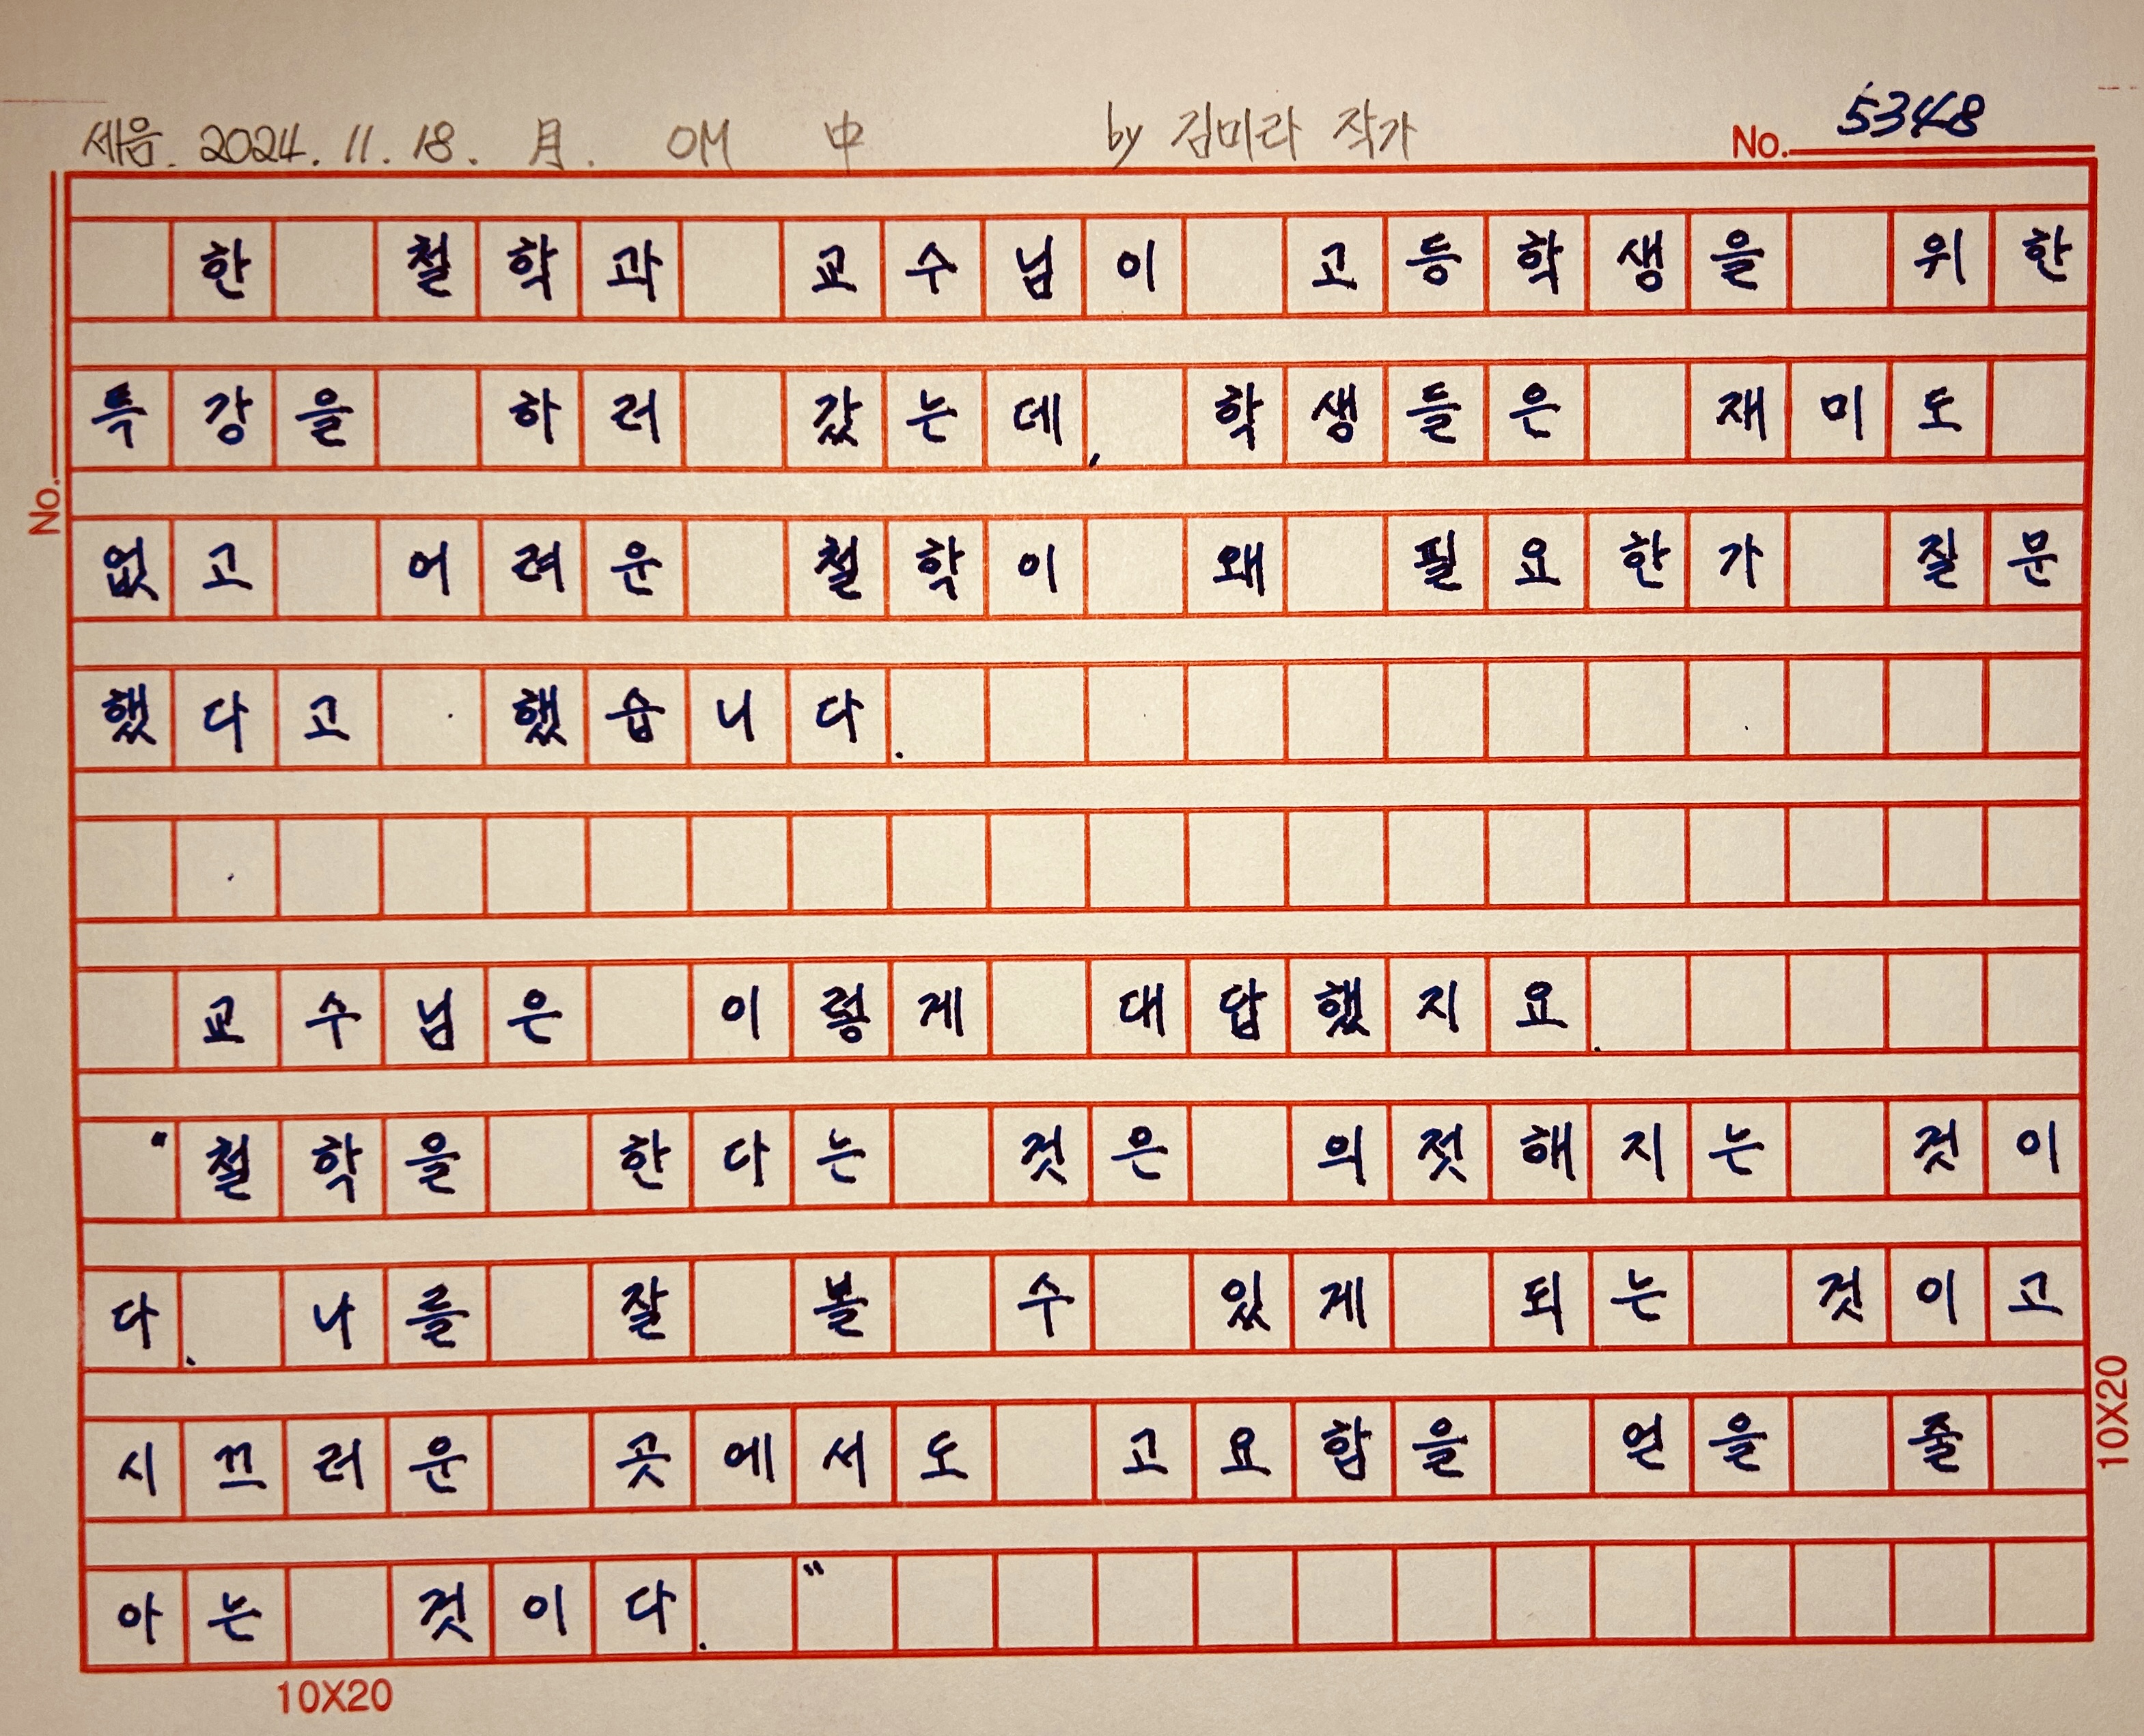 세음. 2024. 11. 18. 月. OM 中 by 김미라 작가
No. 5348
한 철학과 교수님이 고등학생을 위한
특강을 하러 갔는데, 학생들은 재미도
없고 어려운 철학이 왜 필요한가 질문
했다고 했습니다.
교수님은 이렇게 대답했지요.
"철학을 한다는 것은 의젓해지는 것이
다. 나를 잘 볼 수 있게 되는 것이고
시끄러운 곳에서도 고요함을 얻을 줄
아는 것이다."
No.
10X20
10X20